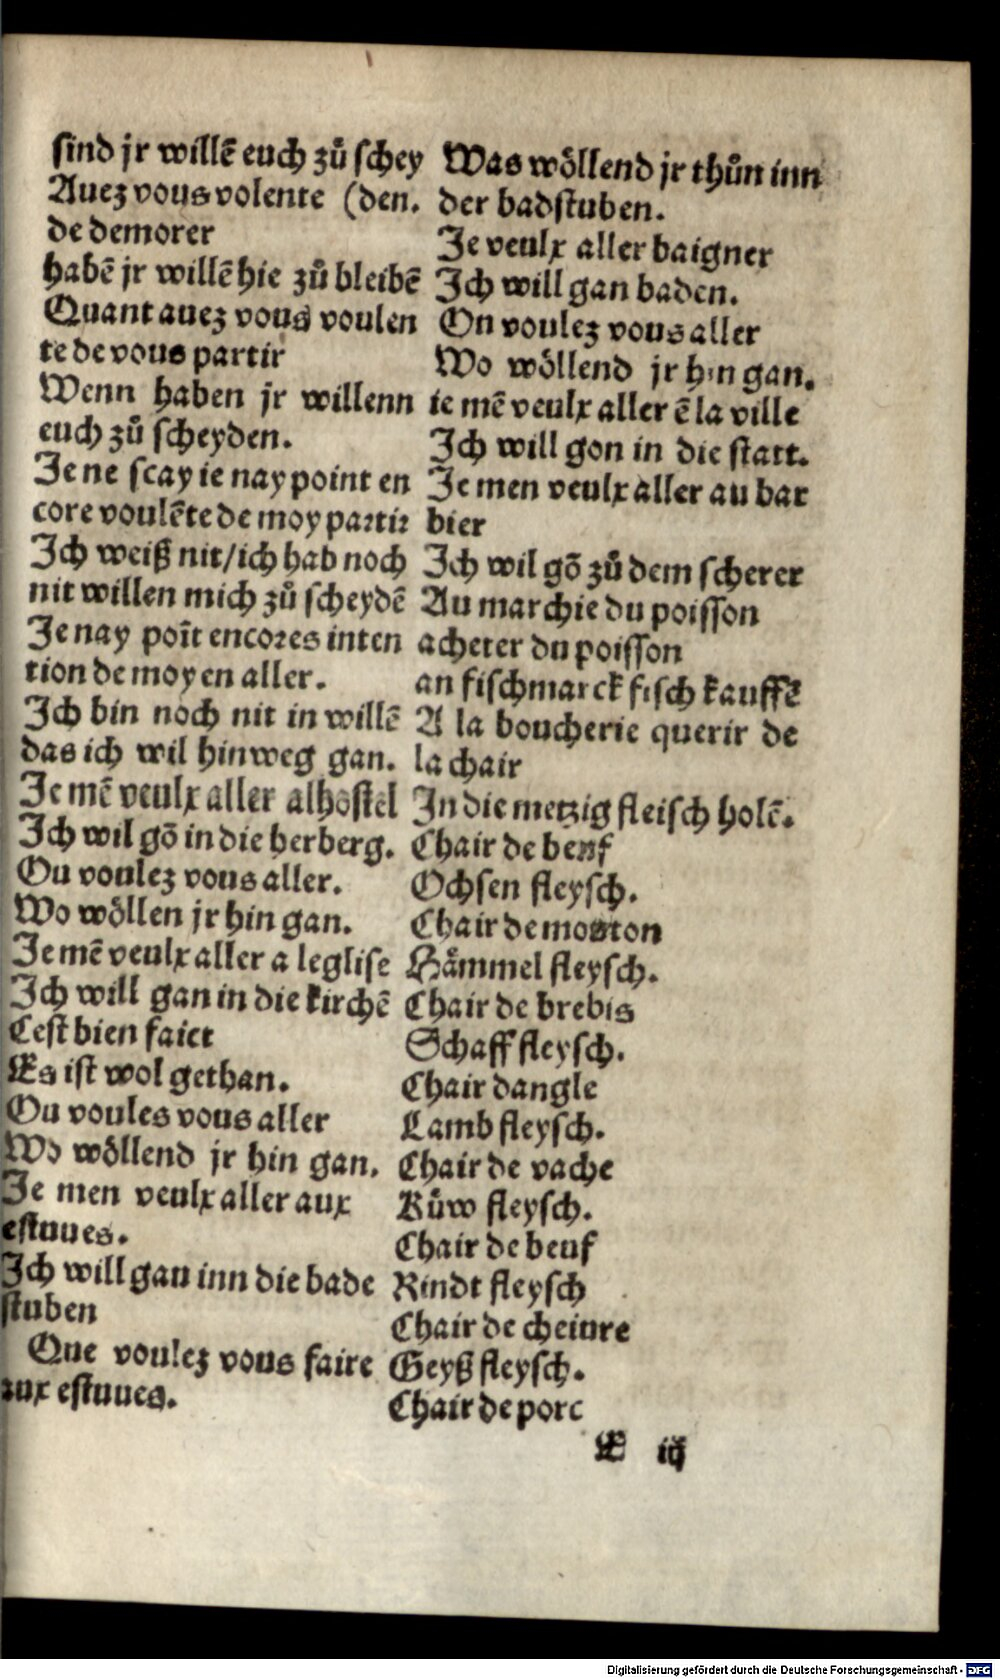 sind jr willē euch zů schey
Auez vous volente (den.
de demorer
habē jr willē hie zů bleibē
Quant auez vous voulen
te de vous partir
Wenn haben jr willenn
euch zů scheyden.
Je ne scay ie nay point en
core voulēte de moy partir
Ich weiß nit/ich hab noch
nit willen mich zů scheydē
Je nay poīt encores inten
tion de moy en aller.
Ich bin noch nit in willē
das ich wil hinweg gan.
Je mē veulx aller alhostel
Ich wil gō in die herberg.
Ou voulez vous aller.
Wo wöllen jr hin gan.
Je mē veulx aller a leglise
Ich will gan in die kirchē
Cest bien faict
Es ist wol gethan.
Ou voules vous aller
Wo wöllend jr hin gan.
Je men veulx aller aux
estuues.
Ich will gan inn die bade
stuben
Que voulez vous faire
aux estuues.
Was wöllend jr thůn inn
der badstuben.
Je veulx aller baigner
Ich will gan baden.
On voulez vous aller
Wo wöllend jr hin gan.
ie mē veulx aller ē la ville
Ich will gon in die statt.
Je men veulx aller au bar
bier
Ich wil gō zů dem scherer
Au marchie du poisson
acheter du poisson
an fischmarckt fisch kauffē
A la boucherie querir de
la chair
In die metzig fleisch holē.
Chair de beuf
Ochsen fleysch.
Chair de mouton
Hämmel fleysch.
Chair de brebis
Schaff fleysch.
Chair dangle
Lamb fleysch.
Chair de vache
Kůw fleysch.
Chair de beuf
Rindt fleysch
Chair de cheiure
Geyß fleysch.
Chair de porc
E iij
Digitalisierung gefördert durch die Deutsche Forschungsgemeinschaft - DFG